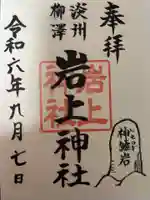 奉拝
淡州
柳澤
岩上神社
岩上神社
令和六年九月七日
神籬岩